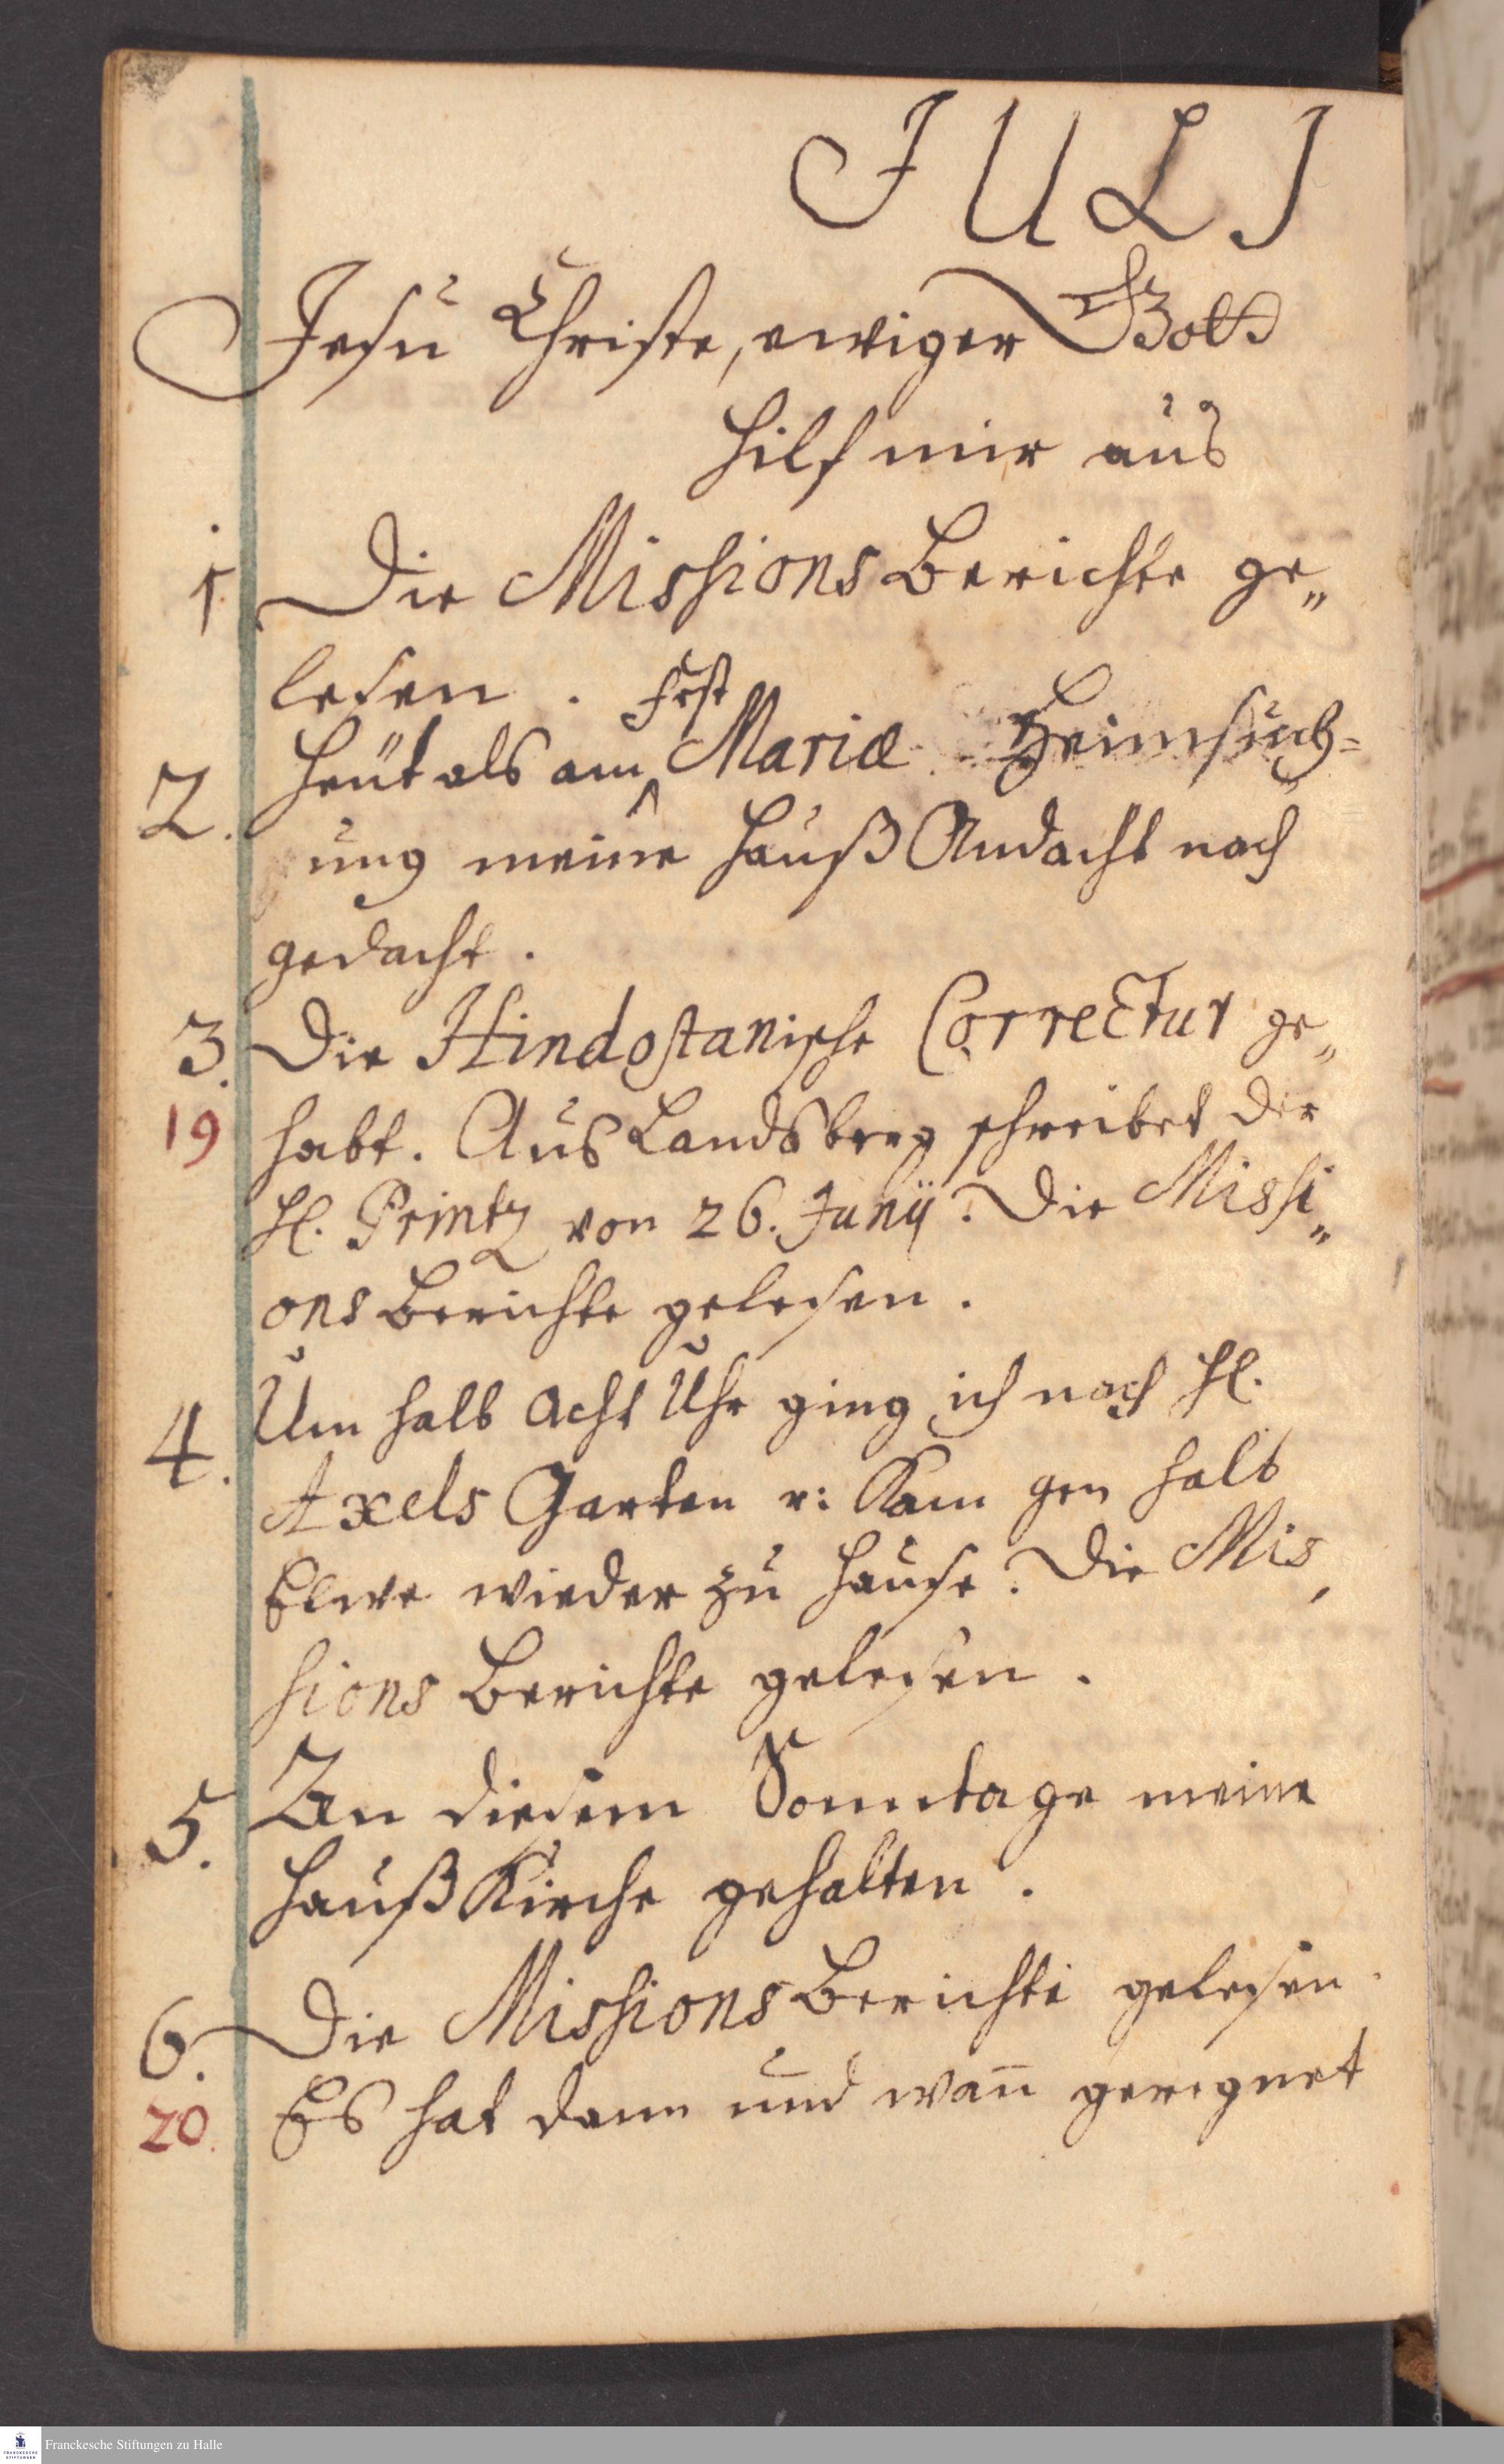 JULI
Jesu Christe, ewiger Gott
hilf mir aus
1. Die Missions Berichte ge„
lesen.
2. Heut als am Fest Mariæ Heimsuch=
ung meine Hauß Andacht nach
gedacht.
3. Die Hindostanische Correctur ge„
19 habt. Aus Landsberg schreibet der
H. Printz von 26. Junii. Die Missi„
ons Berichte gelesen.
4. Um halb acht Uhr ging ich nach H.
Axels Garten u: kam gen halb
Elwe wieder zu Hause. Die Mis,
sions Berichte gelesen.
5. An diesem Sonntage meine
Hauß Kirche gehalten.
6. Die Missions Berichte gelesen.
20. Es hat dann und wan̄ geregnet
Franckesche Stiftungen zu Halle
FRANCKESCHE
STIFTUNGEN